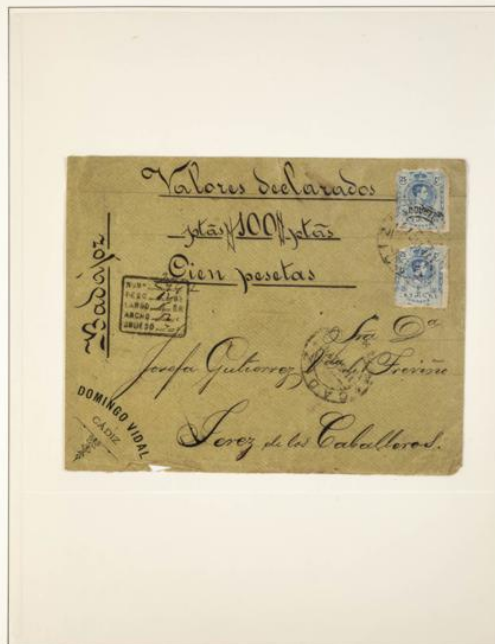 Valores declarados
ptās 100 ptās
Cien pesetas
Badajoz
NUM
PESO
LARGO
ANCHO
GRUESO
Sra Dª
Josefa Gutierrez Vda de Treviño
Jerez de los Caballeros.
DOMINGO VIDAL
CÁDIZ
CADIZ